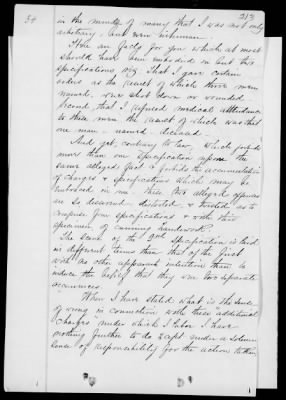 34
213
in the minds of many that I was not only
arbitrary - but even inhuman.
These are facts for you which at most
should have been embodied in but two
specifications, viz. That I gave certain
orders as the result of which three men
named, were shot down or wounded,
Second, that I refused medical attendance
to these men the result of which was that
one man - named - deceased -
And yet, contrary to law, which forbids
more than one specification upon the
same alleged fact & forbids the accumulation
of charges & specifications which may be
embraced in one - these two alleged offences
are so - distorted & twisted as to
compose four specifications & note this
specimen of cunning handiwork
The scene of the 2nd Specification is laid
in different terms than that of the first
with no other apparent intention than to
induce the belief that they were two separate
occurrences.
When I have stated what is the
of wrong in connection with these "additional
charges" under which I labor I have
nothing further to do except under a solemn
sense of responsibility for the action taken